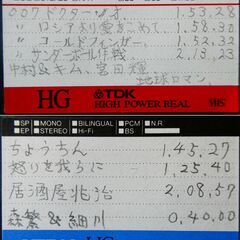 007 ドクター・ノオ 1.53.28
〃 ロシアより愛をこめて 1.58.30
〃 ゴールドフィンガー 1.52.32
〃 サンダーボール作戦 2.13.23
中村&キム、宮田輝
地球ロマン
HG TDK HIGH POWER REAL VHS
SP MONO BILINGUAL PCM N.R
EP STEREO Hi-Fi BS
ちょうちん 1.45.27
怒りを我らに 1.25.40
居酒屋兆治 2.08.57
森繁&細川 0.40.00